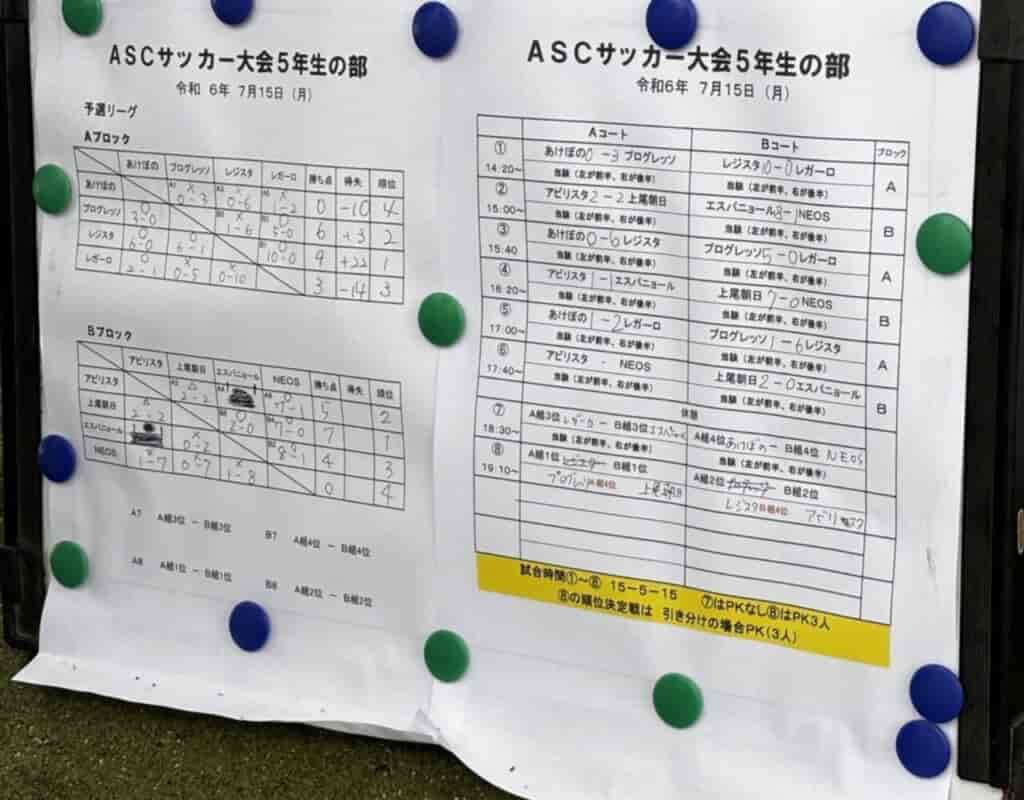 ASCサッカー大会5年生の部
令和 6年 7月15日（月）
予選リーグ
Aブロック
あけぼの プログレッソ レジスタ レガーロ 勝ち点 得失 順位
あけぼの A1 × 0-3 A3 × 0-6 × 1-2 0 -10 4
プログレッソ ○ 3-0 × 1-6 ○ 5-0 6 +3 2
レジスタ ○ 6-0 ○ 6-1 ○ 10-0 9 +22 1
レガーロ ○ 2-1 × 0-5 × 0-10 3 -14 3
Bブロック
アビリスタ 上尾朝日 エスパニョール NEOS 勝ち点 得失 順位
アビリスタ A2 △ 2-2 ○ 7-1 5 2
上尾朝日 △ 2-2 ○ 2-0 ○ 7-0 7 1
エスパニョール 0-2 ○ 8-1 4 3
NEOS 1-7 0-7 × 1-8 0 4
A7 A組3位 － B組3位 B7 A組4位 － B組4位
A8 A組1位 － B組1位 B8 A組2位 － B組2位
ASCサッカー大会5年生の部
令和6年 7月15日（月）
Aコート Bコート ブロック
① 14:20～ あけぼの 0-3 プログレッソ レジスタ 10-0 レガーロ A
当審（左が前半、右が後半） 当審（左が前半、右が後半）
② 15:00～ アビリスタ 2-2 上尾朝日 エスパニョール 8-1 NEOS B
当審（左が前半、右が後半） 当審（左が前半、右が後半）
③ 15:40 あけぼの 0-6 レジスタ プログレッソ 5-0 レガーロ A
当審（左が前半、右が後半） 当審（左が前半、右が後半）
④ 16:20～ アビリスタ 1-1 エスパニョール 上尾朝日 7-0 NEOS B
当審（左が前半、右が後半） 当審（左が前半、右が後半）
⑤ 17:00～ あけぼの 1-2 レガーロ プログレッソ 1-6 レジスタ A
当審（左が前半、右が後半） 当審（左が前半、右が後半）
⑥ 17:40～ アビリスタ - NEOS 上尾朝日 2-0 エスパニョール B
当審（左が前半、右が後半） 当審（左が前半、右が後半）
休憩
⑦ 18:30～ A組3位 レガーロ － B組3位 A組4位 あけぼの － B組4位 NEOS
当審（左が前半、右が後半） 当審（左が前半、右が後半）
⑧ 19:10～ A組1位 レジスタ － B組1位 A組2位 － B組2位
プログレッソ 上尾朝日 レジスタ アビリスタ
試合時間①～⑧ 15－5－15 ⑦はPKなし⑧はPK3人
⑧の順位決定戦は 引き分けの場合PK（3人）